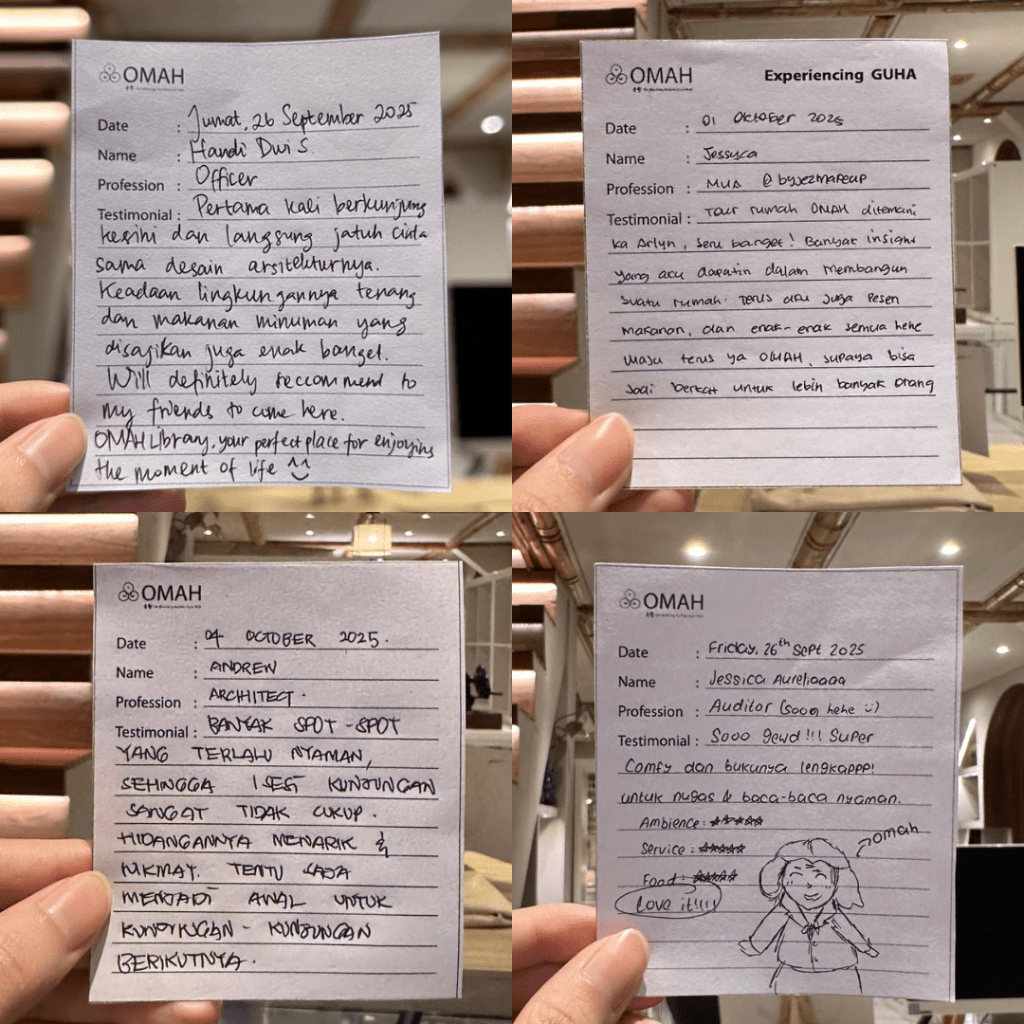 OMAH
Date : Jumat, 26 September 2025
Name : Handi Dwi S.
Profession : Officer
Testimonial : Pertama kali berkunjung
kesini dan langsung jatuh cinta
sama desain arsitekturnya.
Keadaan lingkungannya tenang
dan makanan minuman yang
disajikan juga enak banget.
Will definitely reccommend to
my friends to come here.
OMAH Library, your perfect place for enjoying
the moment of life ^^
OMAH
Experiencing GUHA
Date : 01 OKTOBER 2025
Name : Jessyca
Profession : MUA @byjezmakeup
Testimonial : Tour rumah OMAH ditemani
ka Arlyn, seru banget! Banyak insight
yang aku dapatin dalam membangun
suatu rumah. Terus aku juga pesen
makanan, dan enak-enak semua hehe
Maju terus ya OMAH, supaya bisa
jadi berkat untuk lebih banyak orang
OMAH
Date : 04 OCTOBER 2025.
Name : ANDREW
Profession : ARCHITECT.
Testimonial : BANYAK SPOT-SPOT
YANG TERLALU NYAMAN,
SEHINGGA 1 SESI KUNJUNGAN
SANGAT TIDAK CUKUP.
HIDANGANNYA MENARIK &
NIKMAT. TENTU SAJA
MENJADI AWAL UNTUK
KUNJUNGAN - KUNJUNGAN
BERIKUTNYA.
OMAH
Date : Friday, 26th Sept 2025
Name : Jessica Aureliaaaa
Profession : Auditor (soon hehe :)
Testimonial : Sooo gewd!!! Super
Comfy dan bukunya lengkappp!
untuk nugas & baca-baca nyaman.
Ambience : ★★★★★
Service : ★★★★★
→ omah
Food : ★★★★★
Love it!!!!